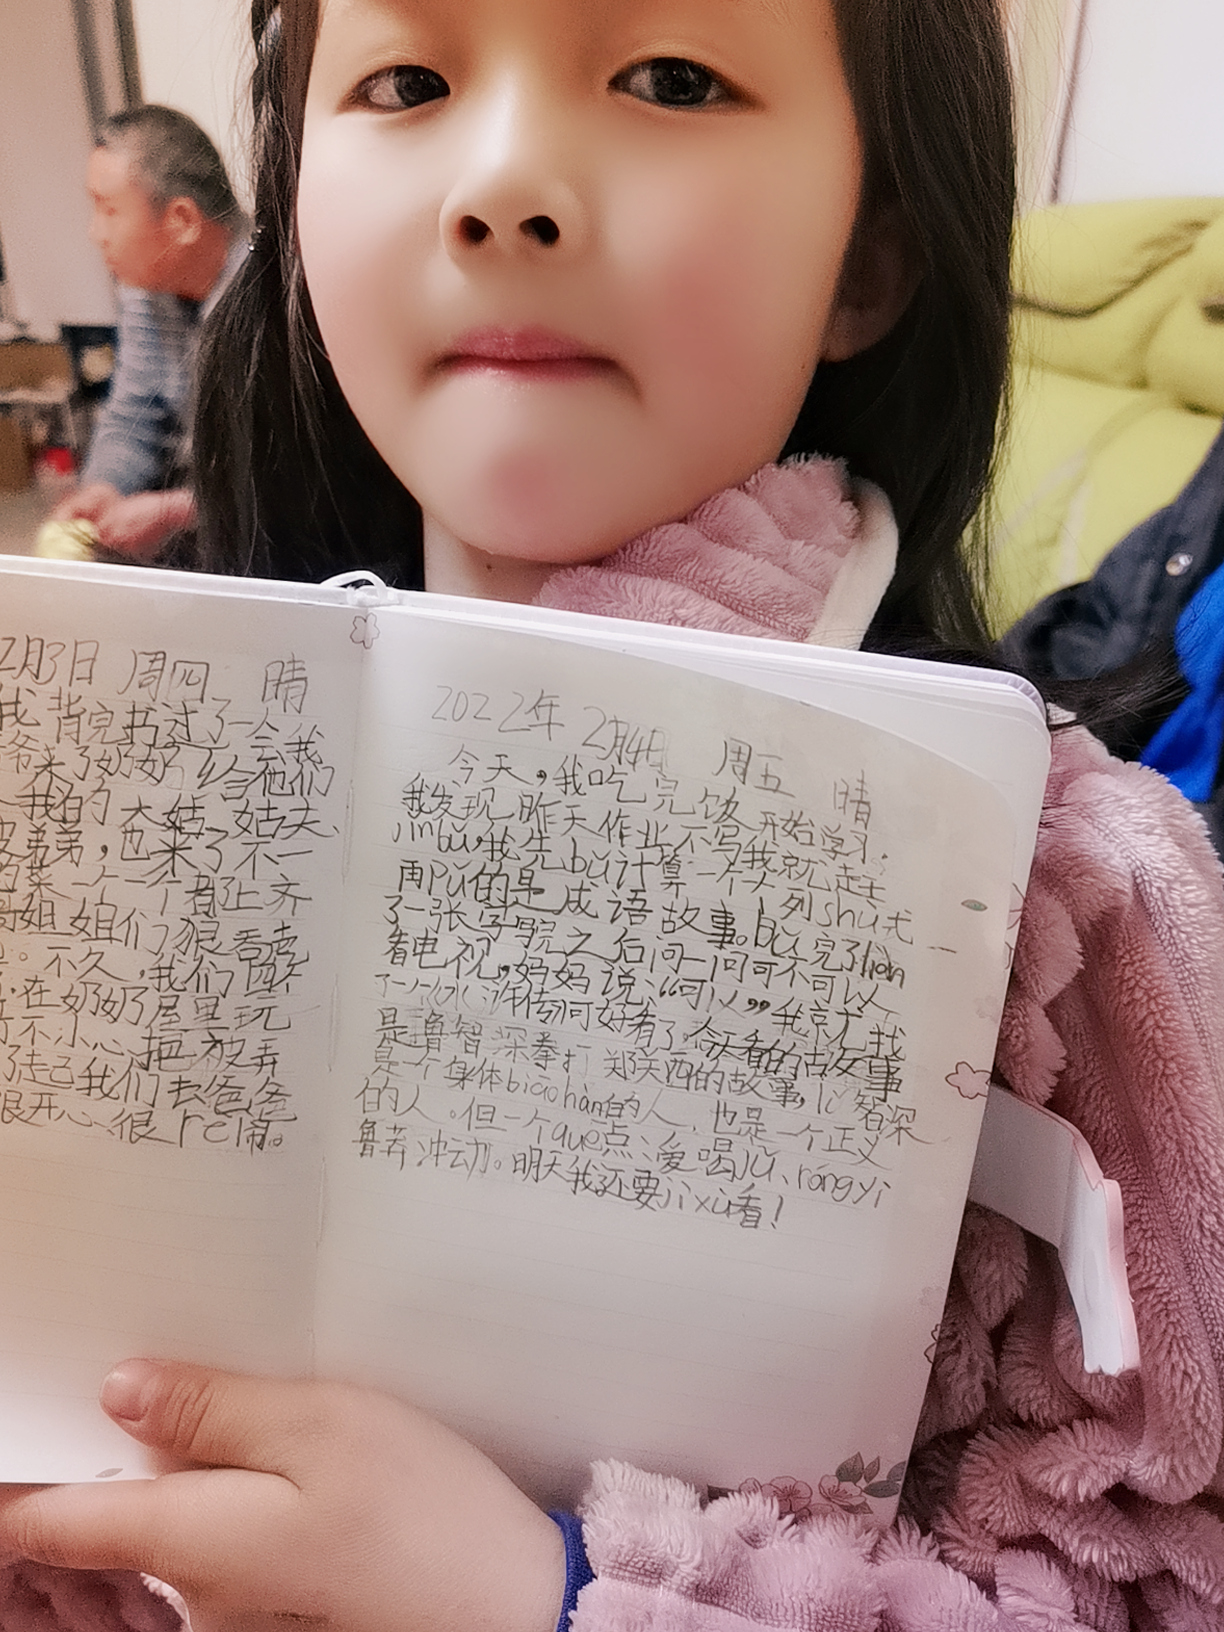 2月3日 周四 晴
我背完书过了一会我
爷来了奶奶
我的大姑、姑夫、
弟弟,也来了不一
菜一个一个都上齐
姐姐们狼吞虎
。不久,我们四个
在奶奶屋里玩
不小心把被弄
了走己我们去爸爸
很开心、很re闹。
2022年 2月4日 周五 晴
今天,我吃完饭开始学习,
我发现昨天作业不写我就赶
jìnbǔ,我先bǔ计算一个大列shù式
再pǔ的是成语故事。bǔ完了liàn
了一张字骁之后问一问可不可以
看电视,妈妈说:“可以”我京尤找
了一个水浒传何好看了。今天看的故事
是鲁智深拳打郑关西的故事,lǔ智深
是一个身体biāohàn的人,也是一个正义
的人。但一个quē点、爱喝jǔ、róngyì
鲁莽冲动。明天我还要jìxù看!